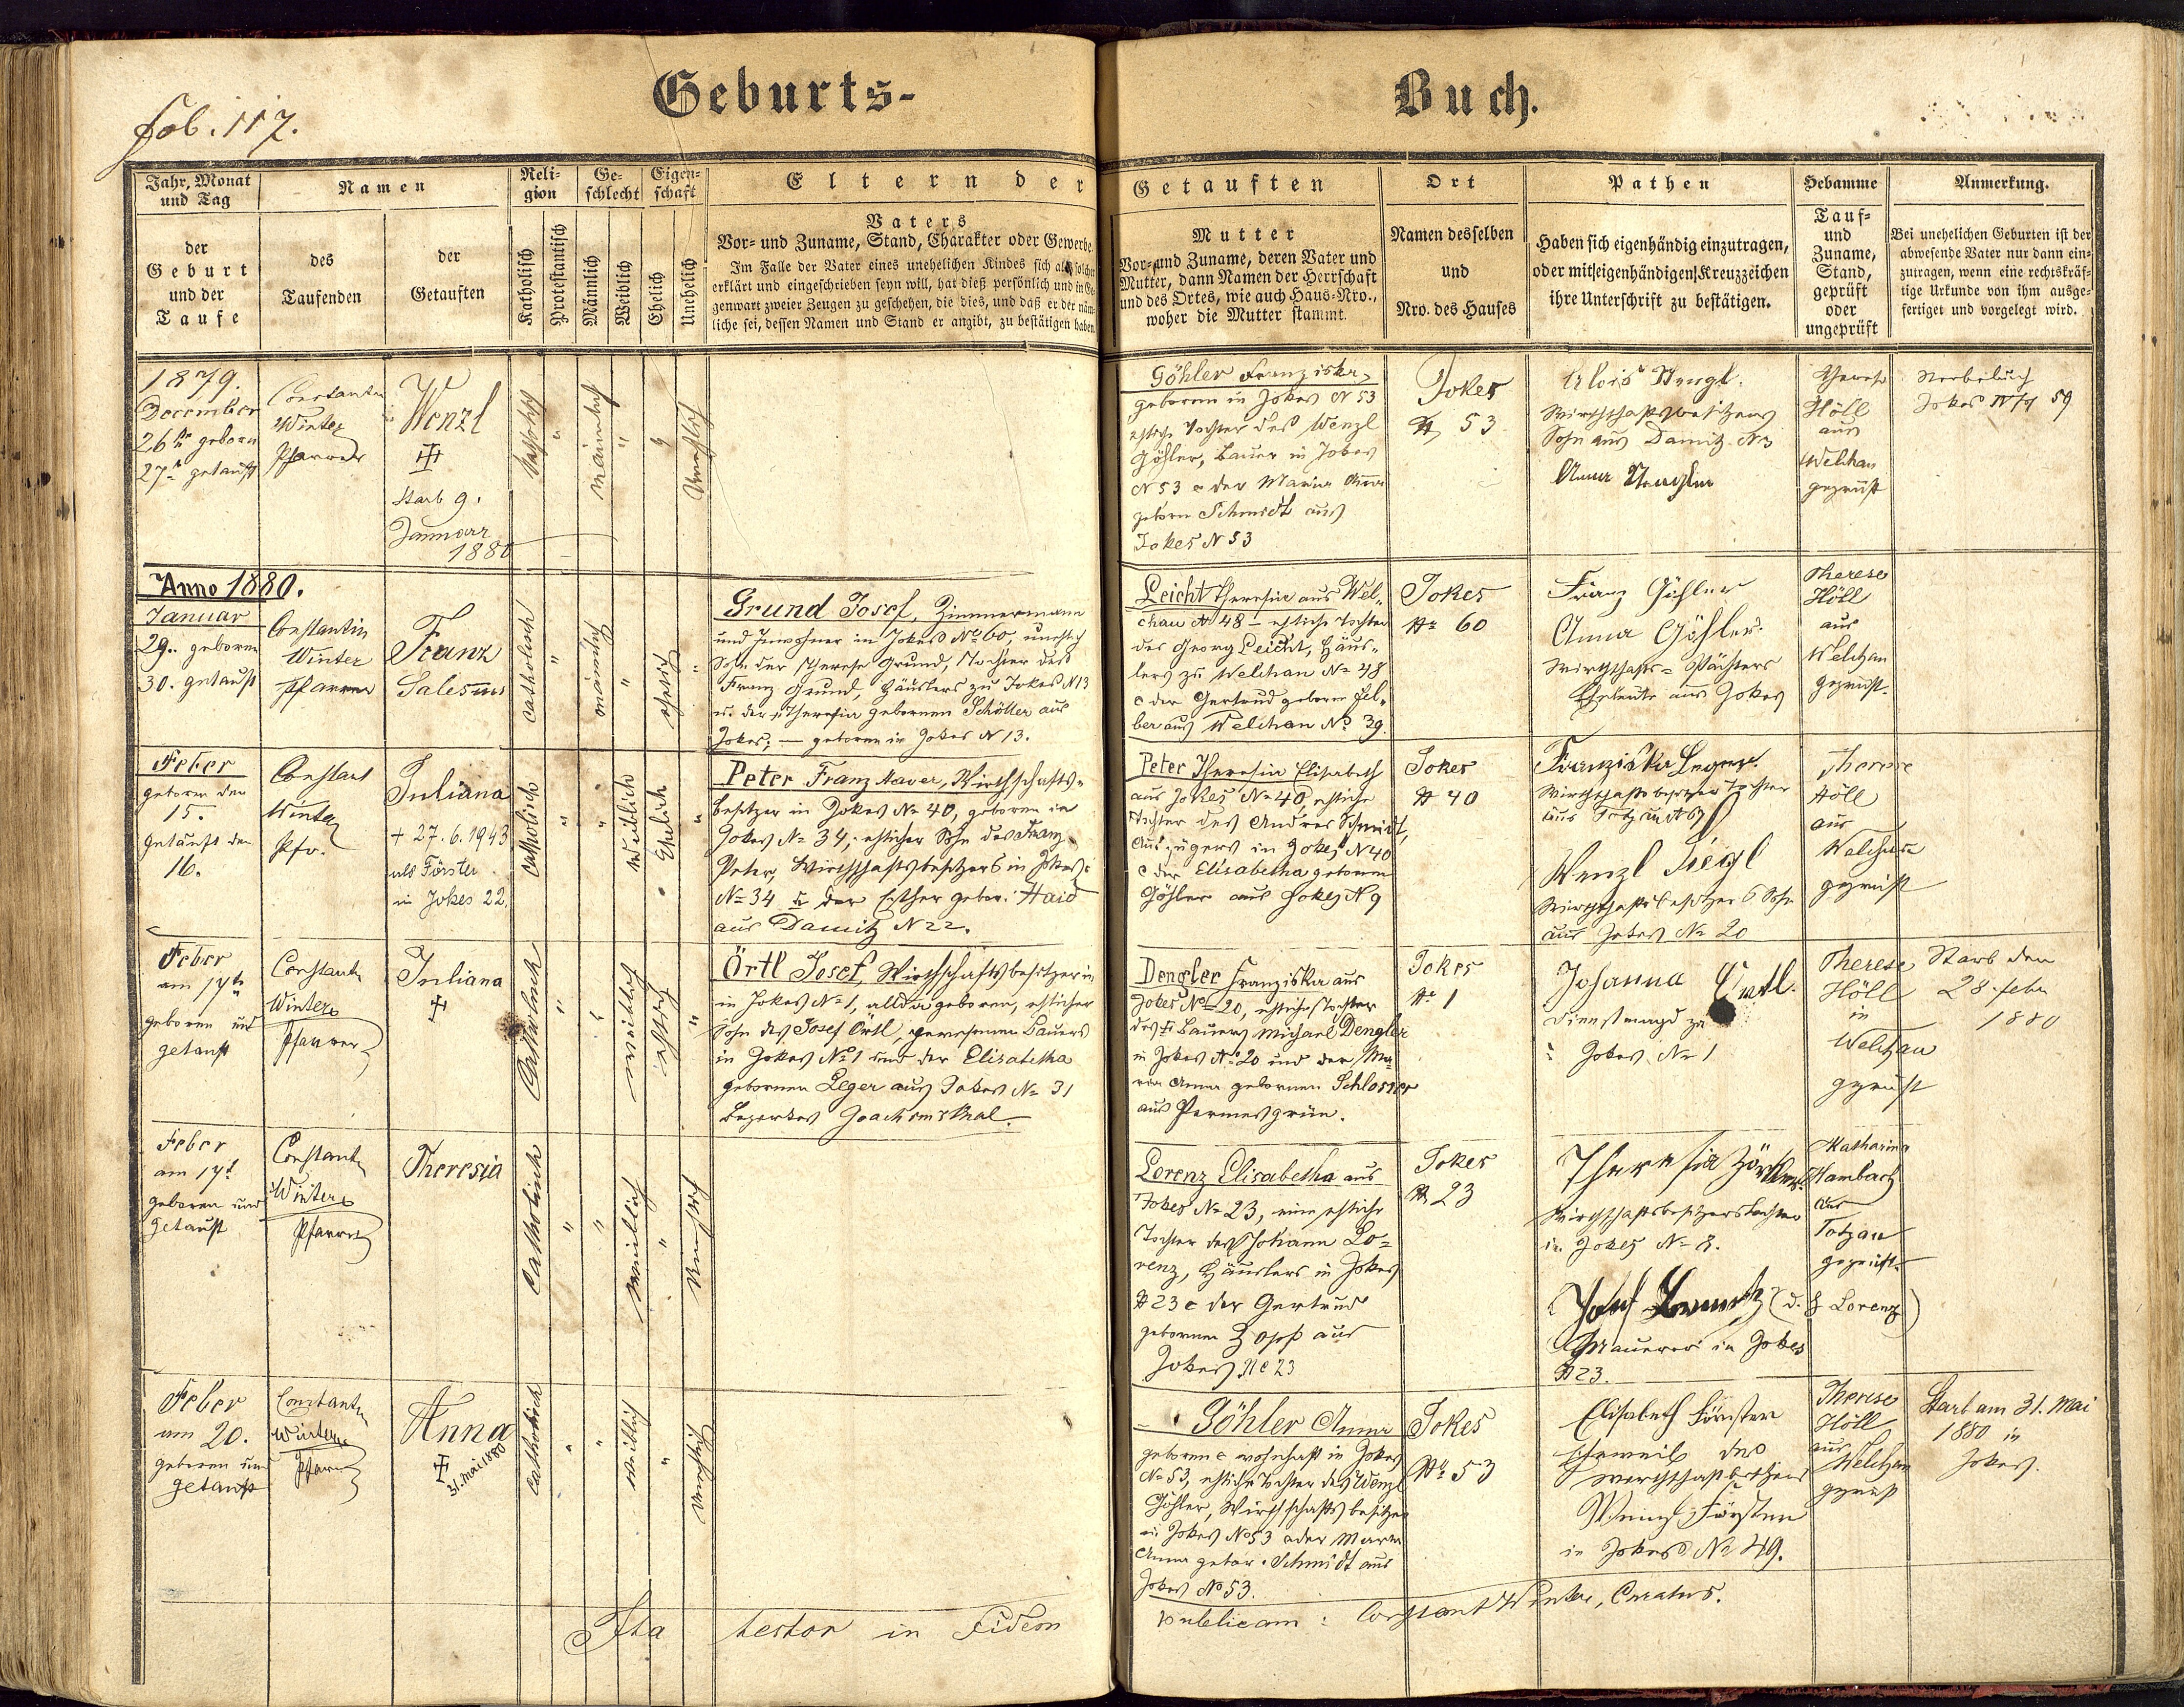 Geburts-
Buch.
fol. 117.
Jahr, Monat
und Tag
der
Geburt
und der
Taufe
Namen
des
Taufenden
der
Getauften
Reli-
gion
Katholisch
Protestantisch
Ge-
schlecht
Männlich
Weiblich
Eigen-
schaft
Ehelich
Unehelich
Eltern der
Vaters
Vor- und Zuname, Stand, Charakter oder Gewerbe.
Im Falle der Vater eines unehelichen Kindes sich als solcher
erklärt und eingeschrieben seyn will, hat dieß persönlich und in Ge-
genwart zweier Zeugen zu geschehen, die dies, und daß er der näm-
liche sei, dessen Namen und Stand er anzibt, zu bestätigen haben.
Getauften
Mutter
Vor- und Zuname, deren Vater und
Mutter, dann Namen der Herrschaft
und des Ortes, wie auch Haus-Nro.,
woher die Mutter stammt.
Ort
Namen desselben
und
Nro. des Hauses
Pathen
Haben sich eigenhändig einzutragen,
oder mit eigenhändigen Kreuzzeichen
ihre Unterschrift zu bestätigen.
Hebamme
Tauf-
und
Zuname,
Stand,
geprüft
oder
ungeprüft
Anmerkung.
Bei unehelichen Geburten ist der
abwesende Vater nur dann ein-
zutragen, wenn eine rechtskräf-
tige Urkunde von ihm ausge-
fertiget und vorgelegt wird.
1879.
December
26te geboren
27te getauft
Constantin
Winter
Pfarrer
Wenzl
starb 9.
Januar
1880
katholisch
"
männlich
"
"
unehelich
Göhler Franziska,
geboren in Jokes N 53
eheliche Tochter des Wenzl
Göhler, Bauer in Jokes
N 53 & der Maria Anna
geborn Schmidt aus
Jokes N 53
Jokes
N 53
Alois
Wirthschaftsbesitzers
Sohn aus Damitz N 3
Anna
Therese
Höll
aus
Welchau
geprüft
Sterbebuch
Jokes
59
Anno 1880.
Januar
29. geboren
30. getauft
Constantin
Winter
Pfarrer
Franz
Salesius
catholisch
"
männlich
"
ehelich
"
Grund Josef, Zimmermann
und Inwohner in Jokes No 60, unehelich
Sohn der Therese Grund, Tochter des
Franz Grund, Häuslers zu Jokes N 13
u. der Theresia gebornen Schöller aus
Jokes; — geboren in Jokes N 13.
Leicht Theresia aus Wel-
chau N 48 – eheliche Tochter
des Georg Leicht, Häus-
lers zu Welchau No 48
& der Gertrud geboren Fel-
ber aus Welchau No 39.
Jokes
Nr 60
Franz Göhler
Anna Göhler
Wirthschafts-Pächters
Eheleute aus Jokes
Therese
Höll
aus
Welchau
geprüft.
Feber
geboren den
15.
getauft den
16.
Constant
Winter
Pfr.
Juliana
+ 27.6.1943
als Förster
in Jokes 22.
catholisch
"
"
weiblich
Ehelich
"
Peter Franz Xaver, Wirthschafts-
besitzer in Jokes No 40, geboren in
Jokes No 34, ehelicher Sohn des Franz
Peter, Wirthschaftsbesitzers in Jokes
No 34 & der Esther gebor. Haid
aus Damitz N 22.
Peter Theresia Elisabeth
aus Jokes No 40, eheliche
Tochter des Andres Schmidt,
Auszügers in Jokes N 40
& der Elisabetha geboren
Göhler aus Jokes N 9
Jokes
N 40
Franziska Leger
Wirthschaftsbesitzers Tochter
aus
Wenzl Siegl
Wirthschaftsbesitzers Sohn
aus Jokes No 20
Therese
Höll
aus
Welchau
geprüft
Feber
am 17te
geboren und
getauft
Constantin
Winter
Pfarrer
Juliana
Catholisch
"
"
weiblich
ehelich
"
Örtl Josef, Wirthschaftsbesitzer in
in Jokes No 1, allda geboren, ehelicher
Sohn des Josef Örtl, gewesenen Bauers
in Jokes No 1 und der Elisabetha
gebornen Leger aus Jokes No 31
Bezirkes Joachimsthal.
Dengler Franziska aus
Jokes No 20, eheliche Tochter
des Bauers Michael Dengler
in Jokes No 20 und der Ma-
ria Anna gebornen Schlosser
aus Permesgrün.
Jokes
No 1
Johanna Örtl.
Dienstmagd zu
Jokes No 1
Therese
Höll
in
Welchau
geprüft
Starb den
28. Feber
1880
Feber
am 17t
geboren und
getauft
Constantin
Winter
Pfarrer
Theresia
Catholisch
"
"
weiblich
"
unehelich
Lorenz Elisabetha aus
Jokes No 23, eine eheliche
Tochter des Johann Lo-
renz, Häuslers in Jokes
N 23 & der Gertrud
gebornen Zopf aus
Jokes No 23
Jokes
N 23
Theresia
Wirthschaftsbesitzerstochter
in Jokes No 8.
Josef Lorentz (d. h Lorenz)
Maurer in Jokes
N 23.
Katharina
Hambach
aus
Totzau
geprüft
Feber
am 20.
geboren und
getauft
Constantin
Winter
Pfarrer
Anna
31. Mai 1880
Catholisch
"
"
weiblich
"
unehelich
Göhler Anna
geboren & wohnhaft in Jokes
No 53, eheliche Tochter des Wenzl
Göhler, Wirthschaftsbesitzer
in Jokes No 53 & der Maria
Anna gebor. Schmidt aus
Jokes No 53.
Jokes
No 53
Elisabeth Förster
Eheweib des
Wirthschaftsbesitzers
Wenzl Förster
in Jokes No 49.
Therese
Höll
aus
Welchau
geprüft
Starb am 31. Mai
1880 in
Jokes.
Ita testor in Fidem
publicam: Constant Winter, Curatus.